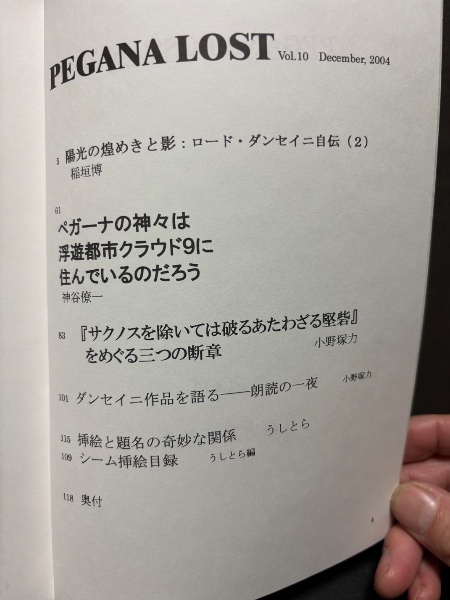 PEGANA LOST Vol.10 December, 2004
5 陽光の煌めきと影：ロード・ダンセイニ自伝（2）
稲垣博
61
ペガーナの神々は
浮遊都市クラウド9に
住んでいるのだろう
神谷僚一
83 『サクノスを除いては破るあたわざる堅砦』
をめぐる三つの断章 小野塚力
101 ダンセイニ作品を語る――朗読の一夜 小野塚力
115 挿絵と題名の奇妙な関係 うしとら
109 シーム挿絵目録 うしとら編
118 奥付
4